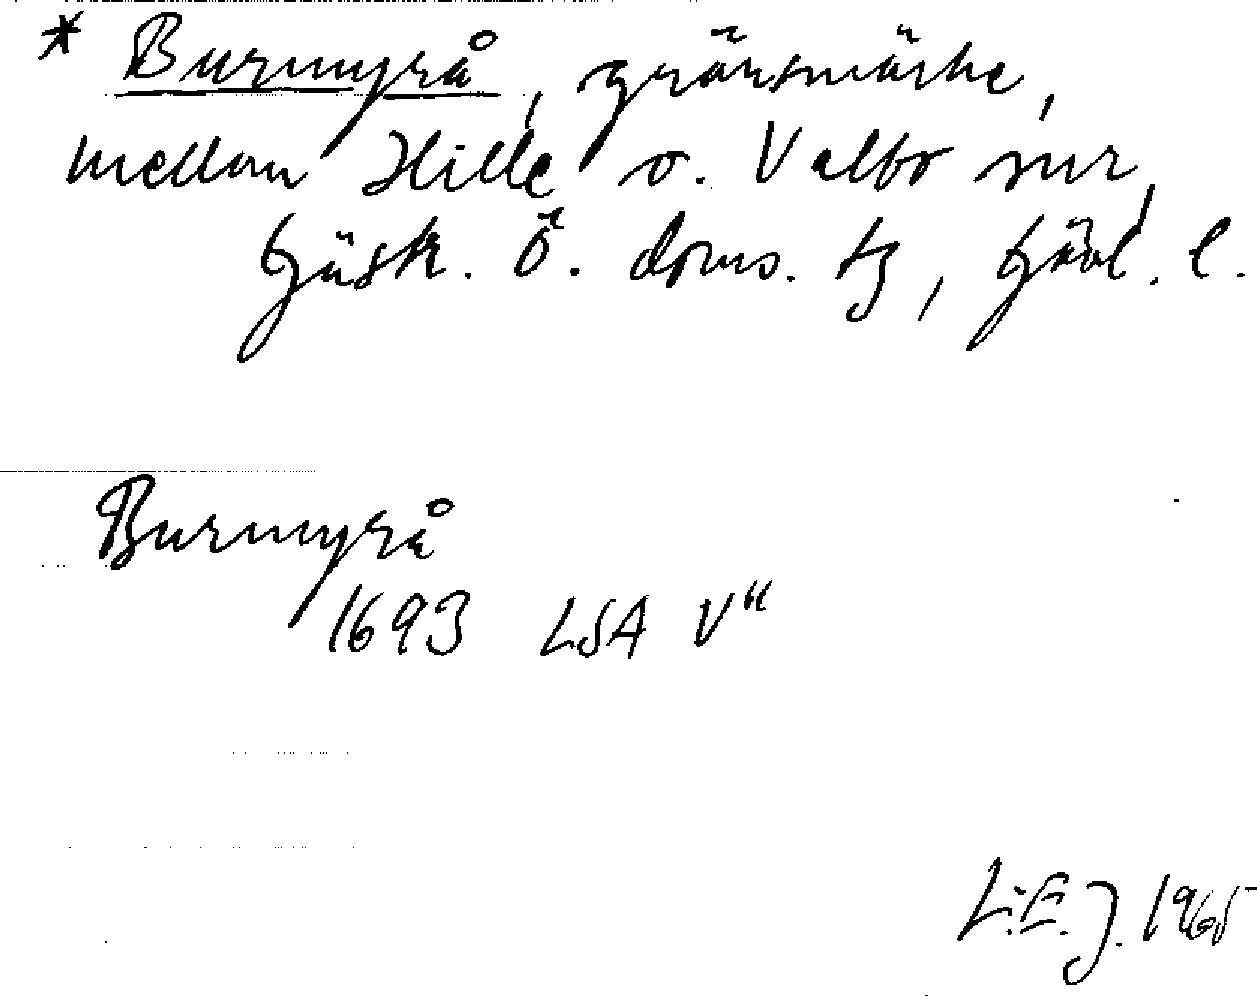 * Burmyrå, gränsmärke,
mellan Hille o. Valbo snr,
Gästr. Ö. doms. tg, Gävl. l.
Burmyrå
1693 LSA V"
L.E.J. 1965